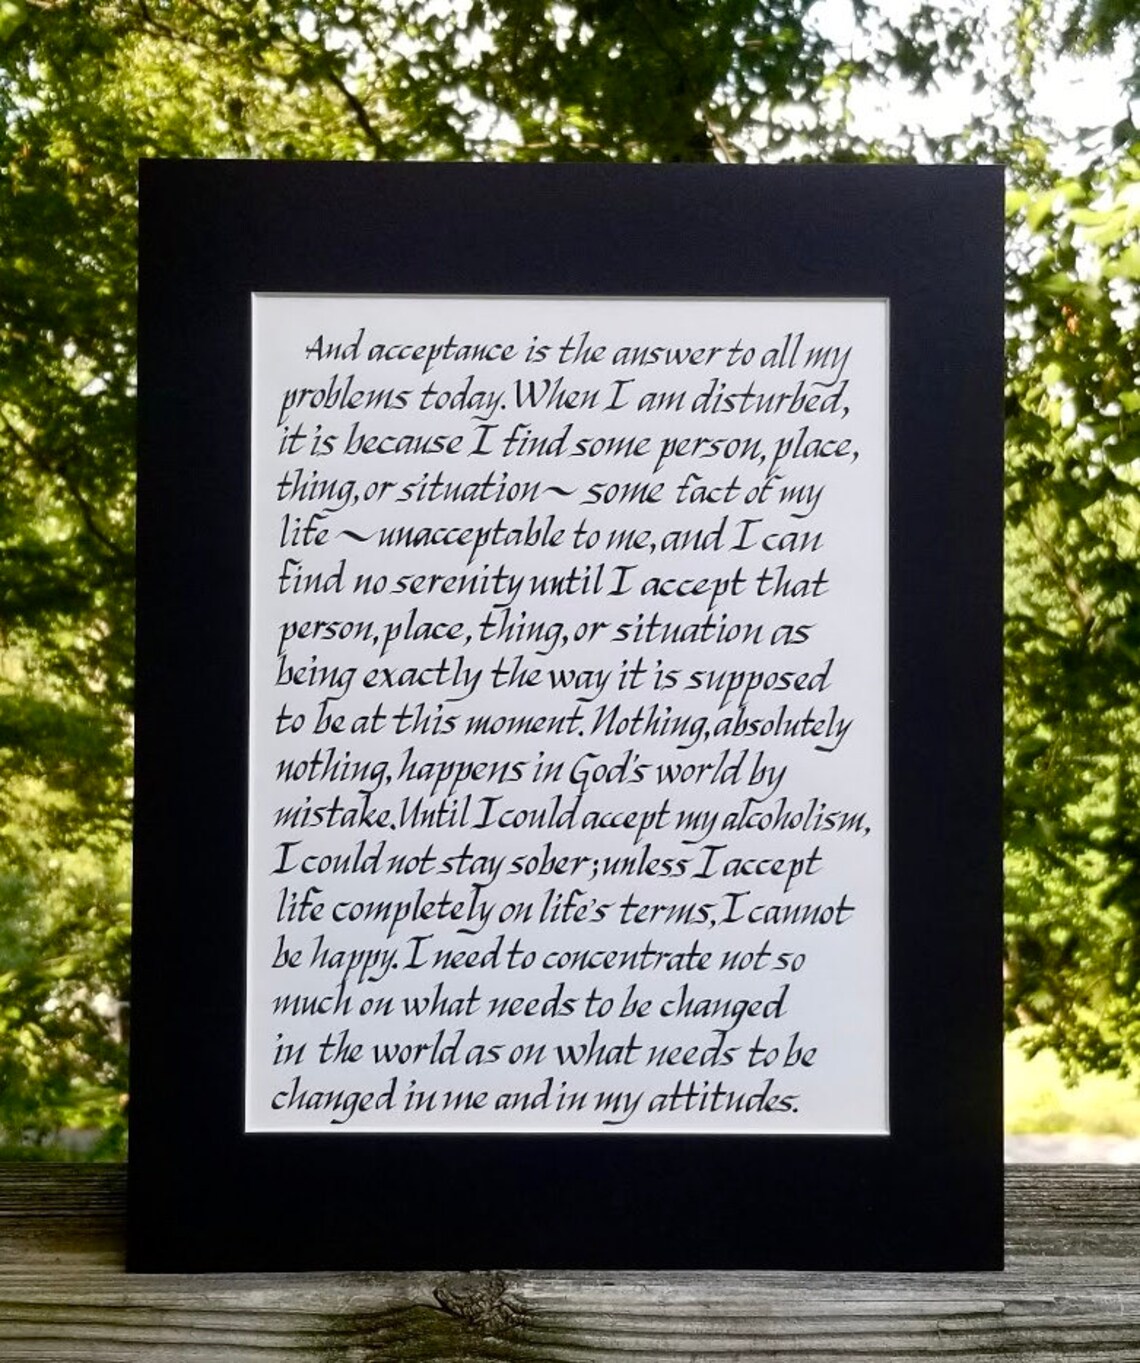 And acceptance is the answer to all my
problems today. When I am disturbed,
it is because I find some person, place,
thing, or situation ~ some fact of my
life ~ unacceptable to me, and I can
find no serenity until I accept that
person, place, thing, or situation as
being exactly the way it is supposed
to be at this moment. Nothing, absolutely
nothing, happens in God's world by
mistake. Until I could accept my alcoholism,
I could not stay sober; unless I accept
life completely on life's terms, I cannot
be happy. I need to concentrate not so
much on what needs to be changed
in the world as on what needs to be
changed in me and in my attitudes.